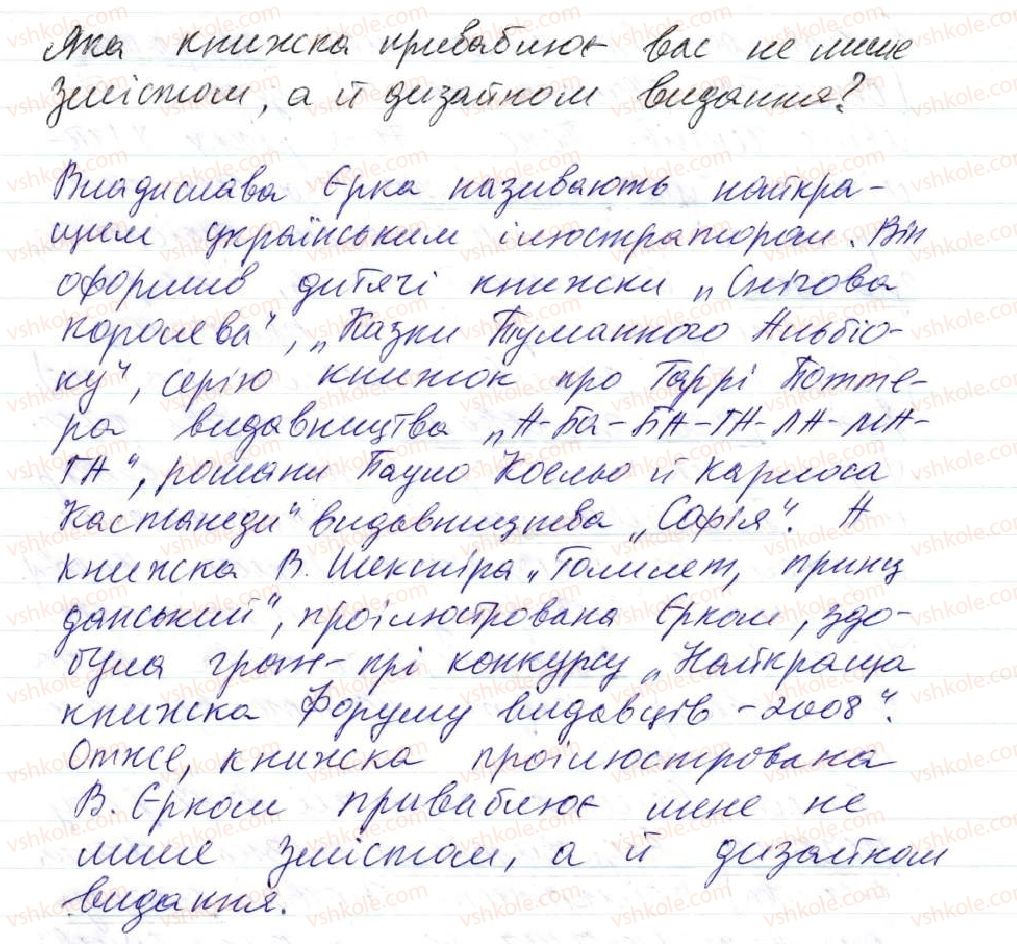 Яка книжка приваблює вас не лише
змістом, а й дизайном видання?
Владислава Єрка називають найкра-
щим українським ілюстратором. Він
оформив дитячі книжки „Снігова
королева", „Казки Туманного Альбіо-
ну", серію книжок про Гаррі Потте-
ра видавництва „А-Ба-БА-ГА-ЛА-МА-
ГА", романи Пауло Коельо й Карлоса
Кастанеди" видавництва „Софія". А
книжка В. Шекспіра „Гамлет, принц
данський", проілюстрована Єрком, здо-
була гран-прі конкурсу „Найкраща
книжка Форуму видавців - 2008".
Отже, книжка проілюстрована
В. Єрком приваблює мене не
лише змістом, а й дизайном
видання.
vshkole.com